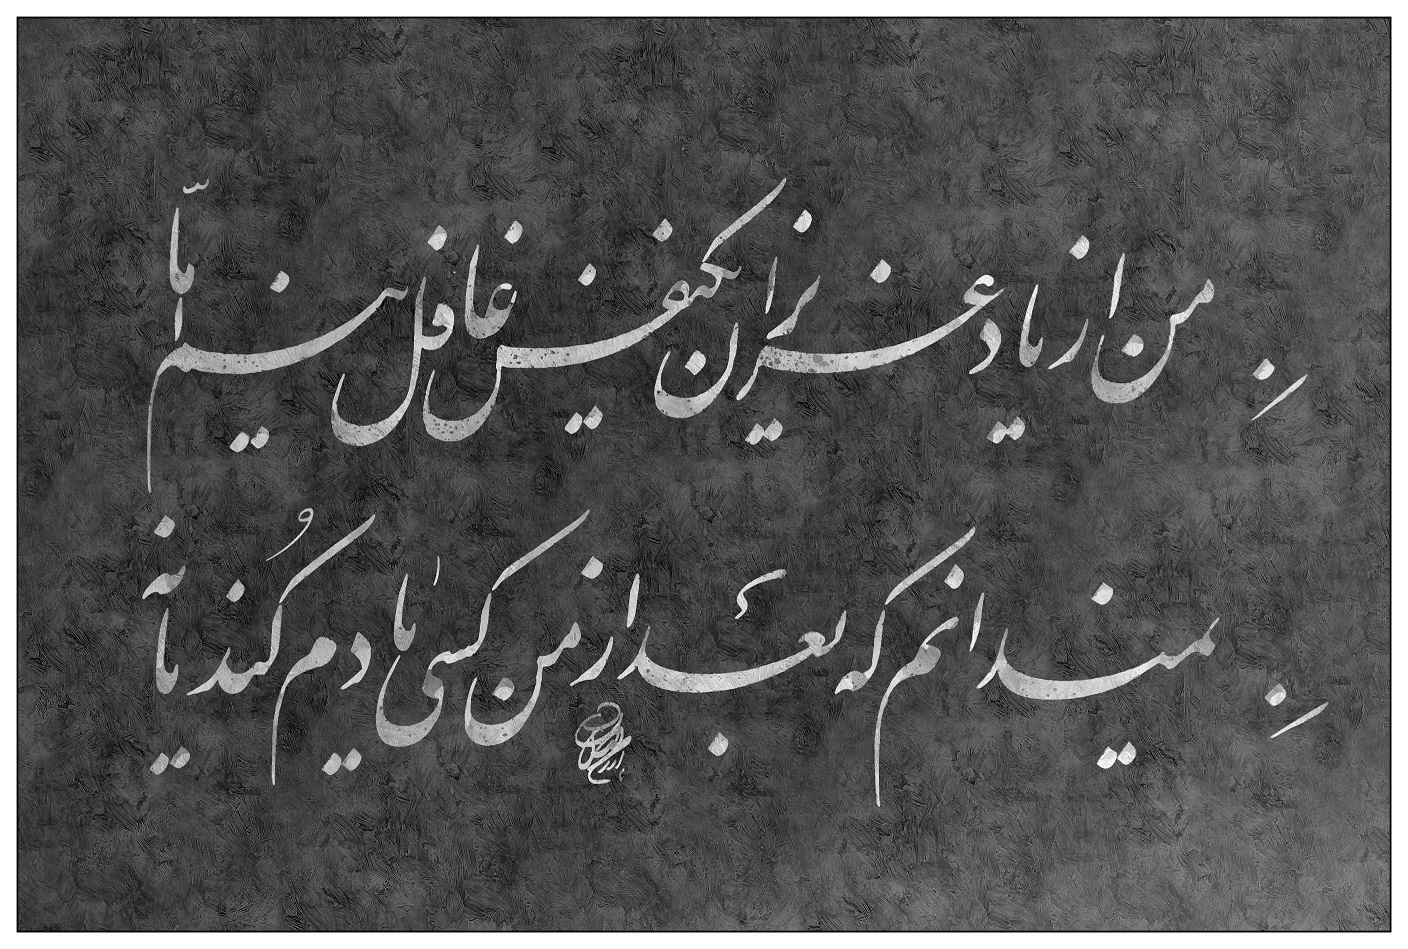 من از یاد عزیزان یک نفس غافل نیم امّا
نمیدانم که بعد از من کسی یادم کُند یا نه